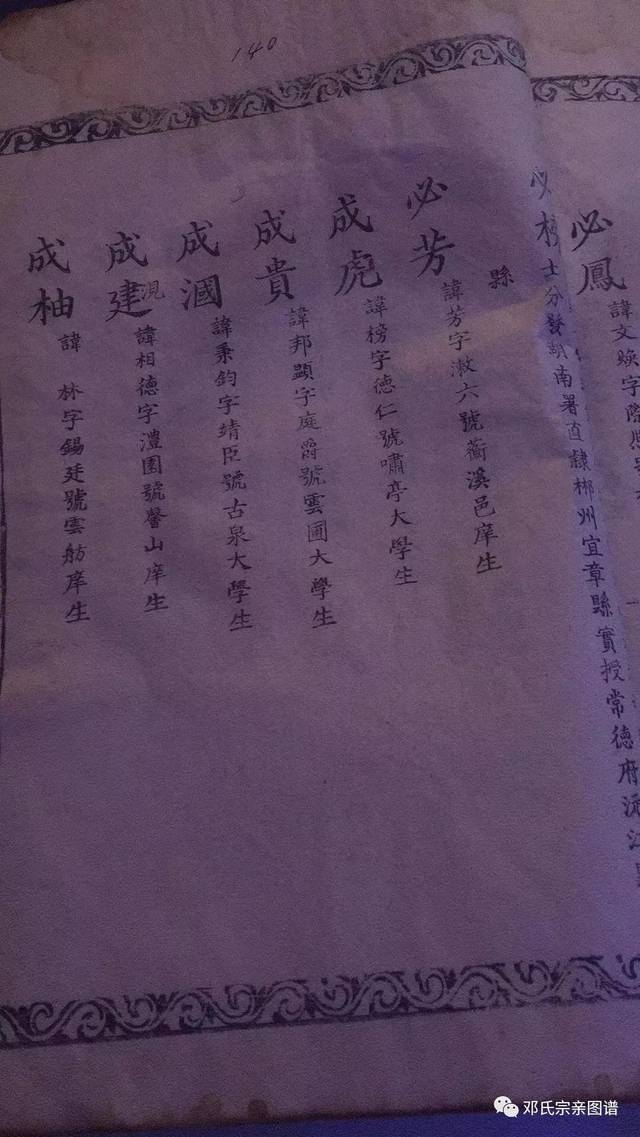 140
必鳳 諱文
必 士分發湖南署直隸郴州宜章縣實授常德府沅江
縣
必芳 諱芳字漱六號蘅溪邑庠生
成虎 諱榜字德仁號嘯亭大學生
成貴 諱邦顯字庭爵號雲圃大學生
成國 諱秉鈞字靖臣號古泉大學生
成建 諱相德字澧園號馨山庠生
成柚 諱 林字錫廷號雲舫庠生
邓氏宗亲图谱